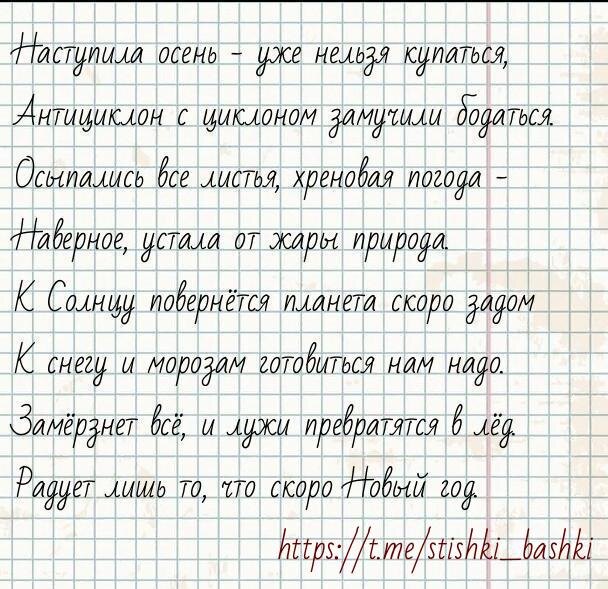 Наступила осень - уже нельзя купаться,
Антициклон с циклоном замучили бодаться.
Осыпались все листья, хреновая погода -
Наверное, устала от жары природа.
К Солнцу повернётся планета скоро задом
К снегу и морозам готовиться нам надо.
Замёрзнет всё, и лужи превратятся в лёд.
Радует лишь то, что скоро Новый год.
https://t.me/stishki_bashki